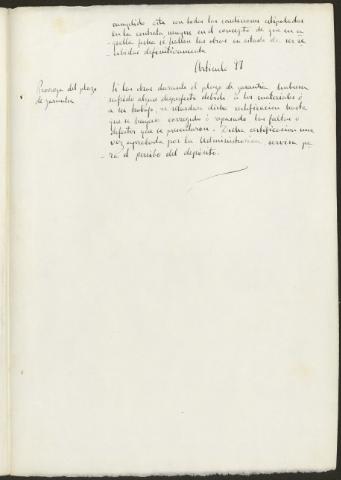 cumplido ésta con todas las condiciones estipuladas
en la contrata, aunque en el concepto de que en a-
quella fecha se hallen las obras en estado de ser re-
cibidas definitivamente
Artículo 41
Prorroga del plazo
de garantia
Si las obras durante el plazo de garantia hubieran
sufrido algun desperfecto debido á los materiales ó
a su trabajo, se retardara dicha certificacion hasta
que se hayan corregido ó reparado las faltas o
defectos que se presentaron. Dicha certificacion una
vez aprobada por la Administracion servira pa-
ra el percibo del depósito.